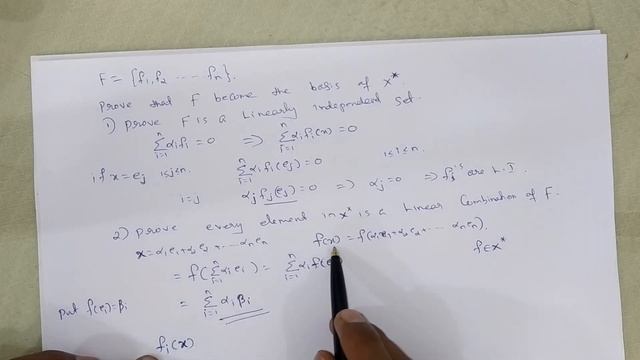 F = {f₁, f₂ ..... fₙ}.
Prove that F become the basis of X*
1) Prove F is a Linearly independent set.
∑ⁿᵢ₌₁ αᵢfᵢ = 0 ⇒ ∑ⁿᵢ₌₁ αᵢfᵢ(x) = 0
if x = eⱼ 1≤j≤n. ∑ⁿᵢ₌₁ αᵢfᵢ(eⱼ) = 0 1≤i≤n.
i=j αⱼfⱼ(eⱼ) = 0 ⇒ αⱼ = 0 ⇒ fⱼ's are L.I.
2) Prove every element in X* is a Linear Combination of F.
x = α₁e₁ + α₂e₂ + ... αₙeₙ f(x) = f(α₁e₁ + α₂e₂ + ... αₙeₙ). f ∈ X*
= f(∑ⁿᵢ₌₁ αᵢeᵢ) = ∑ⁿᵢ₌₁ αᵢf(
put f(eᵢ) = βᵢ = ∑ⁿᵢ₌₁ αᵢβᵢ
fᵢ(x)